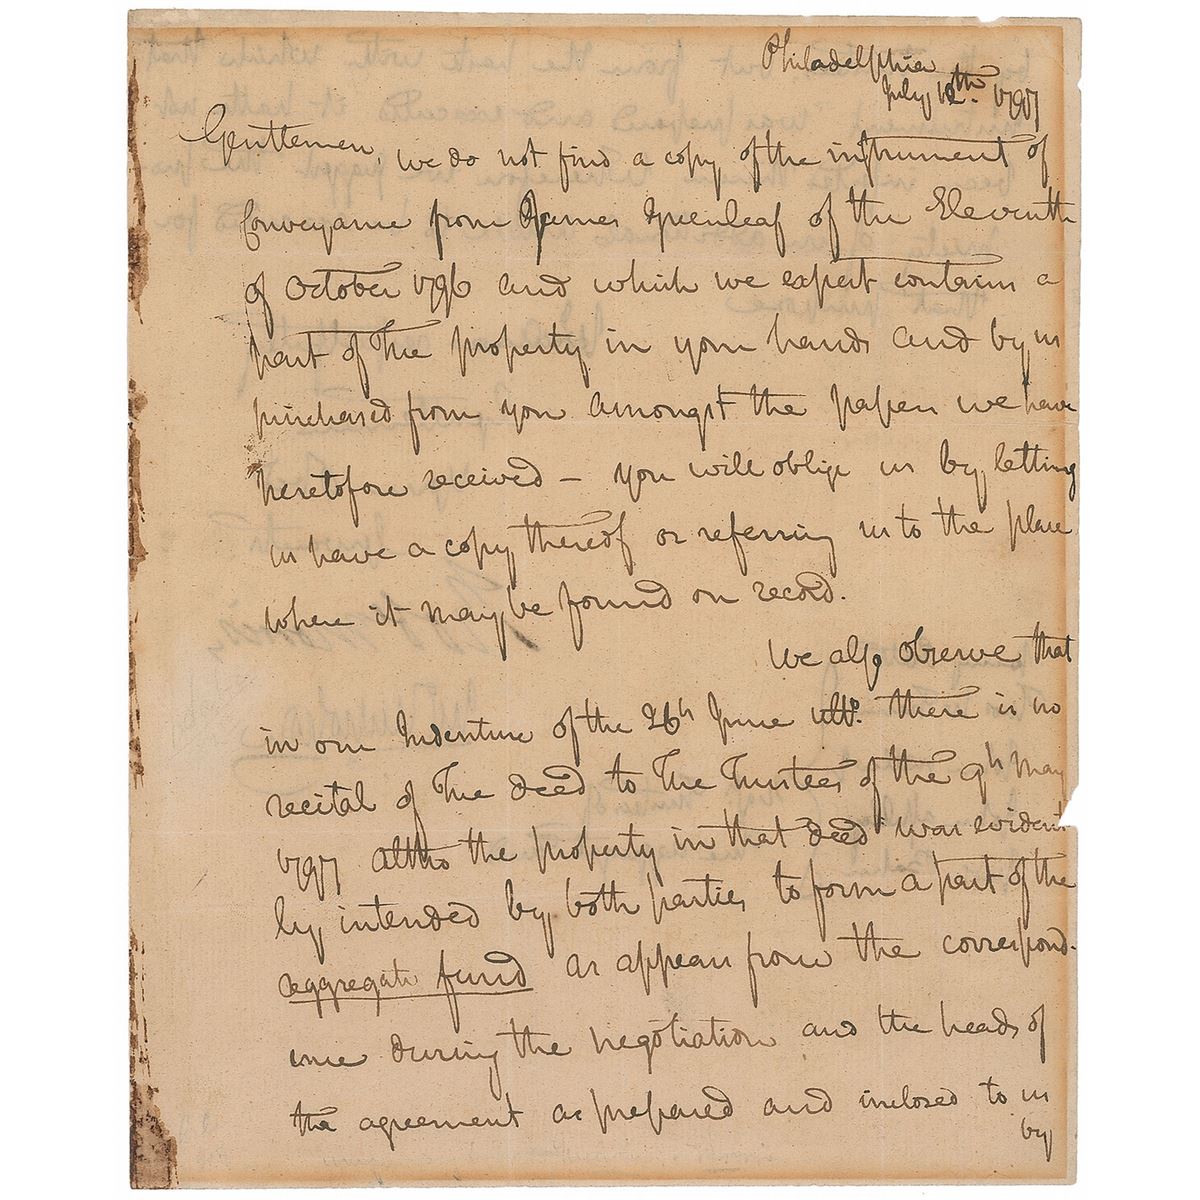 Philadelphia
July 12th. 1797
Gentlemen, we do not find a copy of the instrument of
Conveyance from James Greenleaf of the Eleventh
of October 1796 and which we expect contains a
part of the property in your hands and by us
purchased from you amongst the papers we have
heretofore received — you will oblige us by letting
us have a copy thereof or referring us to the place
where it may be found on record.
We also observe that
in our Indenture of the 26th June ulto. there is no
recital of the deed to the Trustees of the 9th May
1797 altho the property in that deed was evident
ly intended by both parties to form a part of the
aggregate fund as appears from the correspond-
ence during the negotiation and the heads of
the agreement as prepared and inclosed to us
by